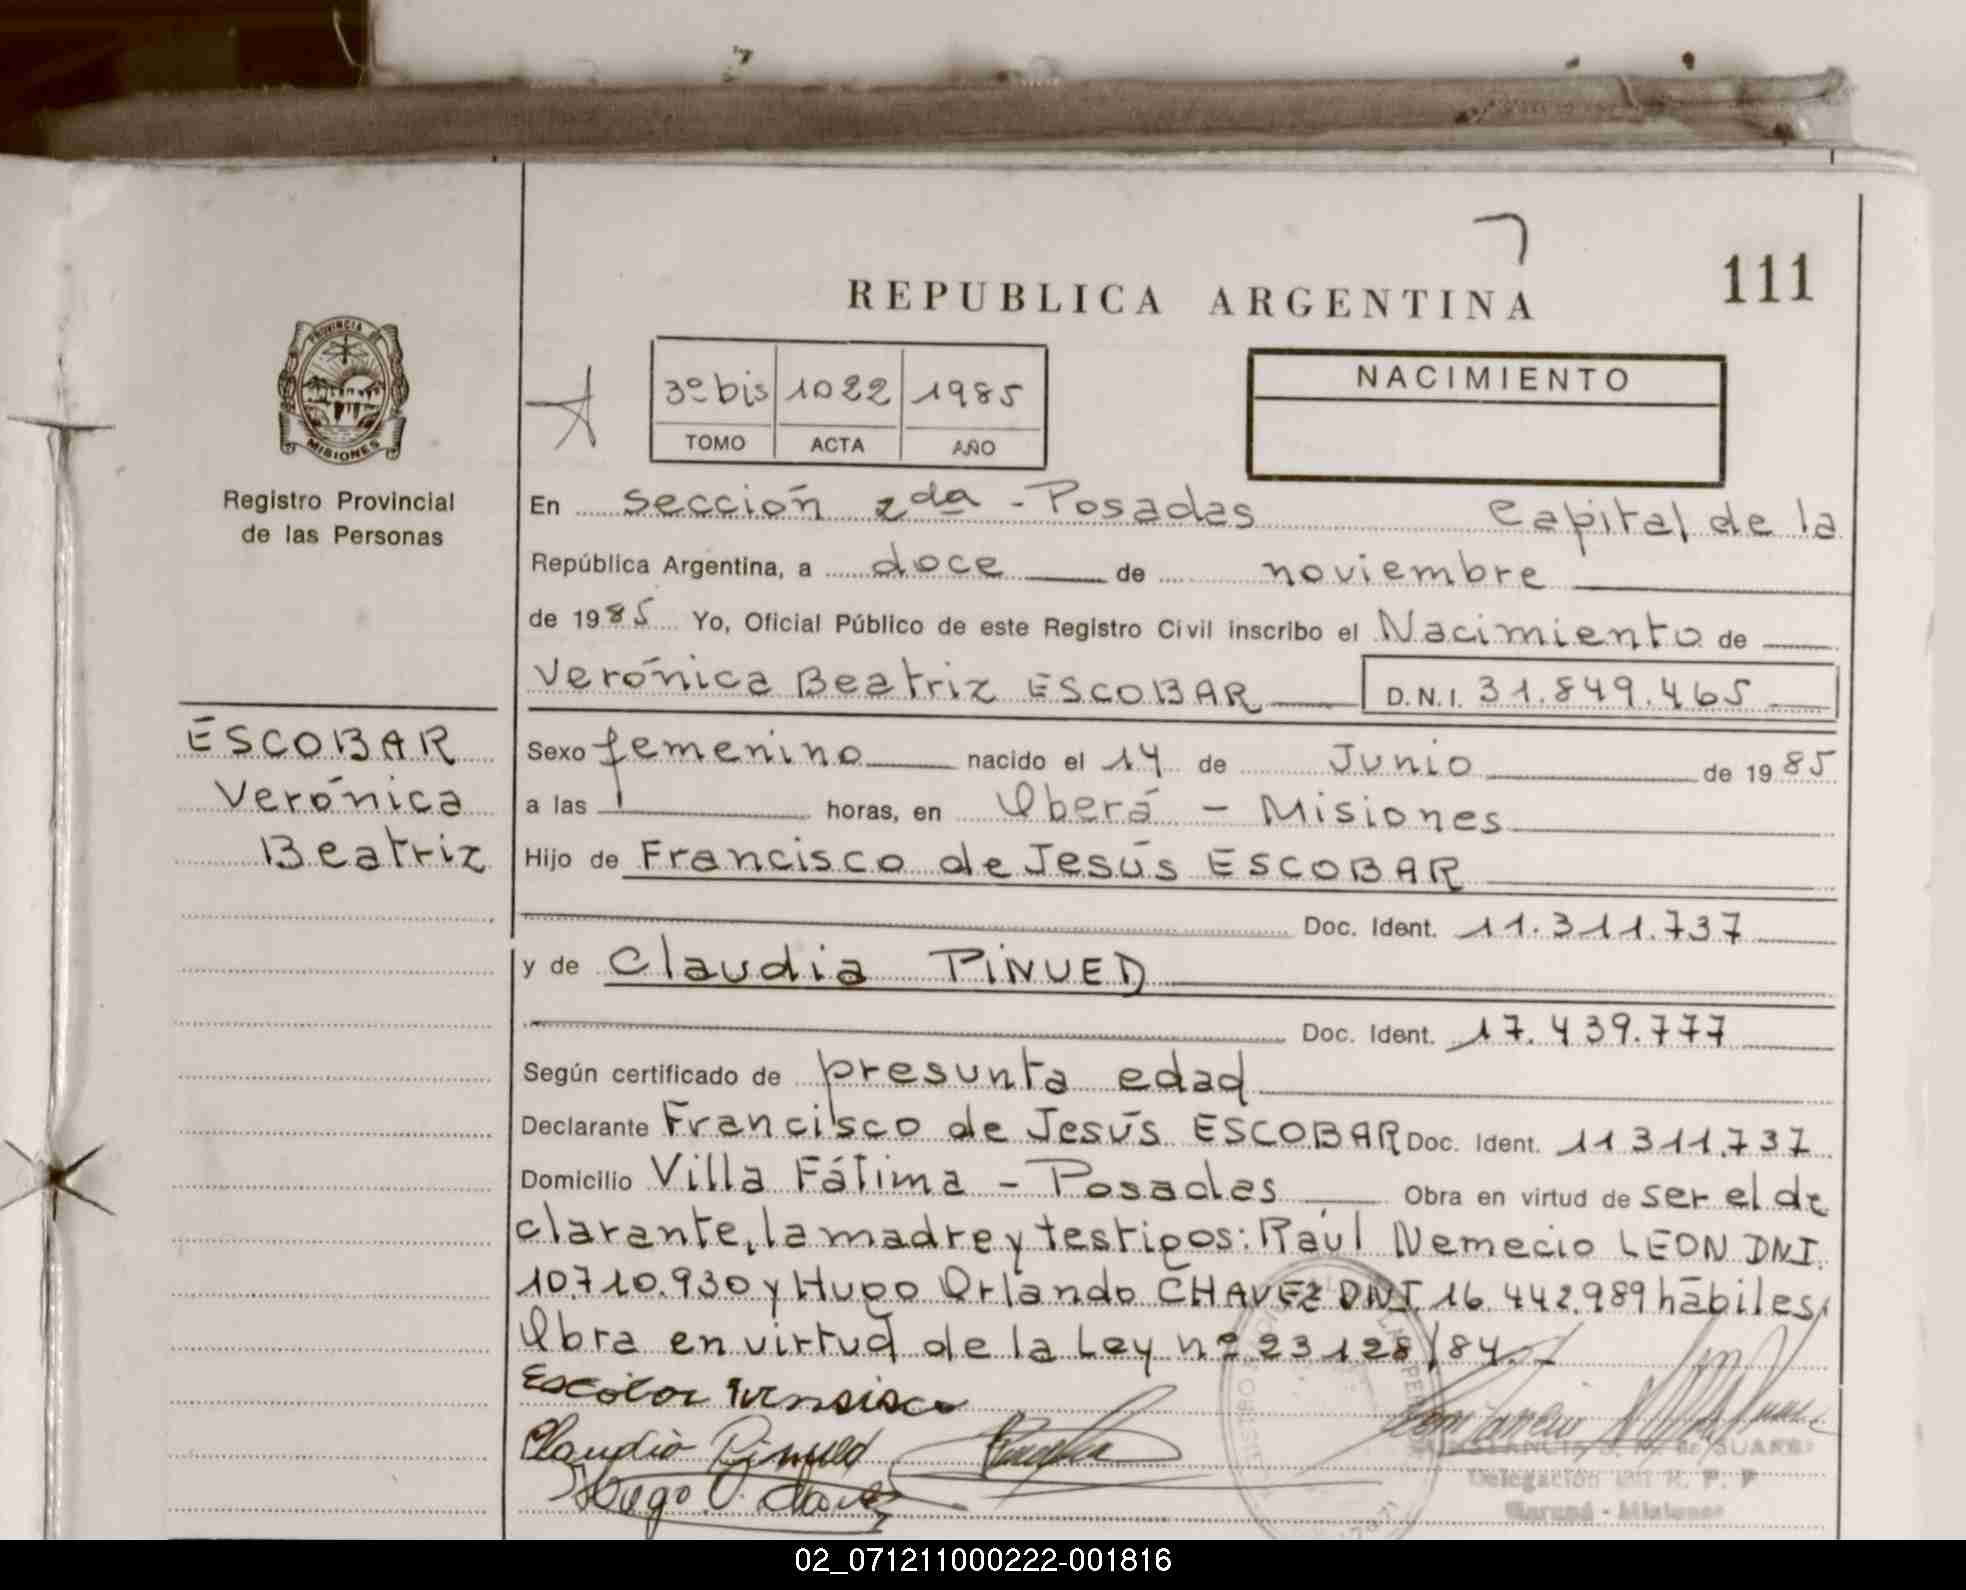 111
REPUBLICA ARGENTINA
PROVINCIA DE
MISIONES
Registro Provincial
de las Personas
3º bis 1022 1985
TOMO ACTA AÑO
NACIMIENTO
En Sección 2da - Posadas Capital de la
República Argentina, a doce de noviembre
de 1985 Yo, Oficial Público de este Registro Civil inscribo el Nacimiento de
Verónica Beatriz ESCOBAR D.N.I. 31.849.465
ESCOBAR
Verónica
Beatriz
Sexo femenino nacido el 14 de Junio de 1985
a las horas, en Oberá - Misiones
Hijo de Francisco de Jesús ESCOBAR
Doc. Ident. 11.311.737
y de Claudia PINUED
Doc. Ident. 17.439.777
Según certificado de presunta edad
Declarante Francisco de Jesús ESCOBAR Doc. Ident. 11311.737
Domicilio Villa Fátima - Posadas Obra en virtud de ser el de
clarante, la madre y testigos: Raúl Nemecio LEON DNI.
10.710.930 y Hugo Orlando CHAVEZ DNI. 16.442.989 hábiles,
Obra en virtud de la Ley nº 23128/84.-
Escobar Fransisco
Claudia Pinued
Hugo O. Chavez
SUAREZ
Delegación del R. P. P
Garupá - Misiones
02_071211000222-001816